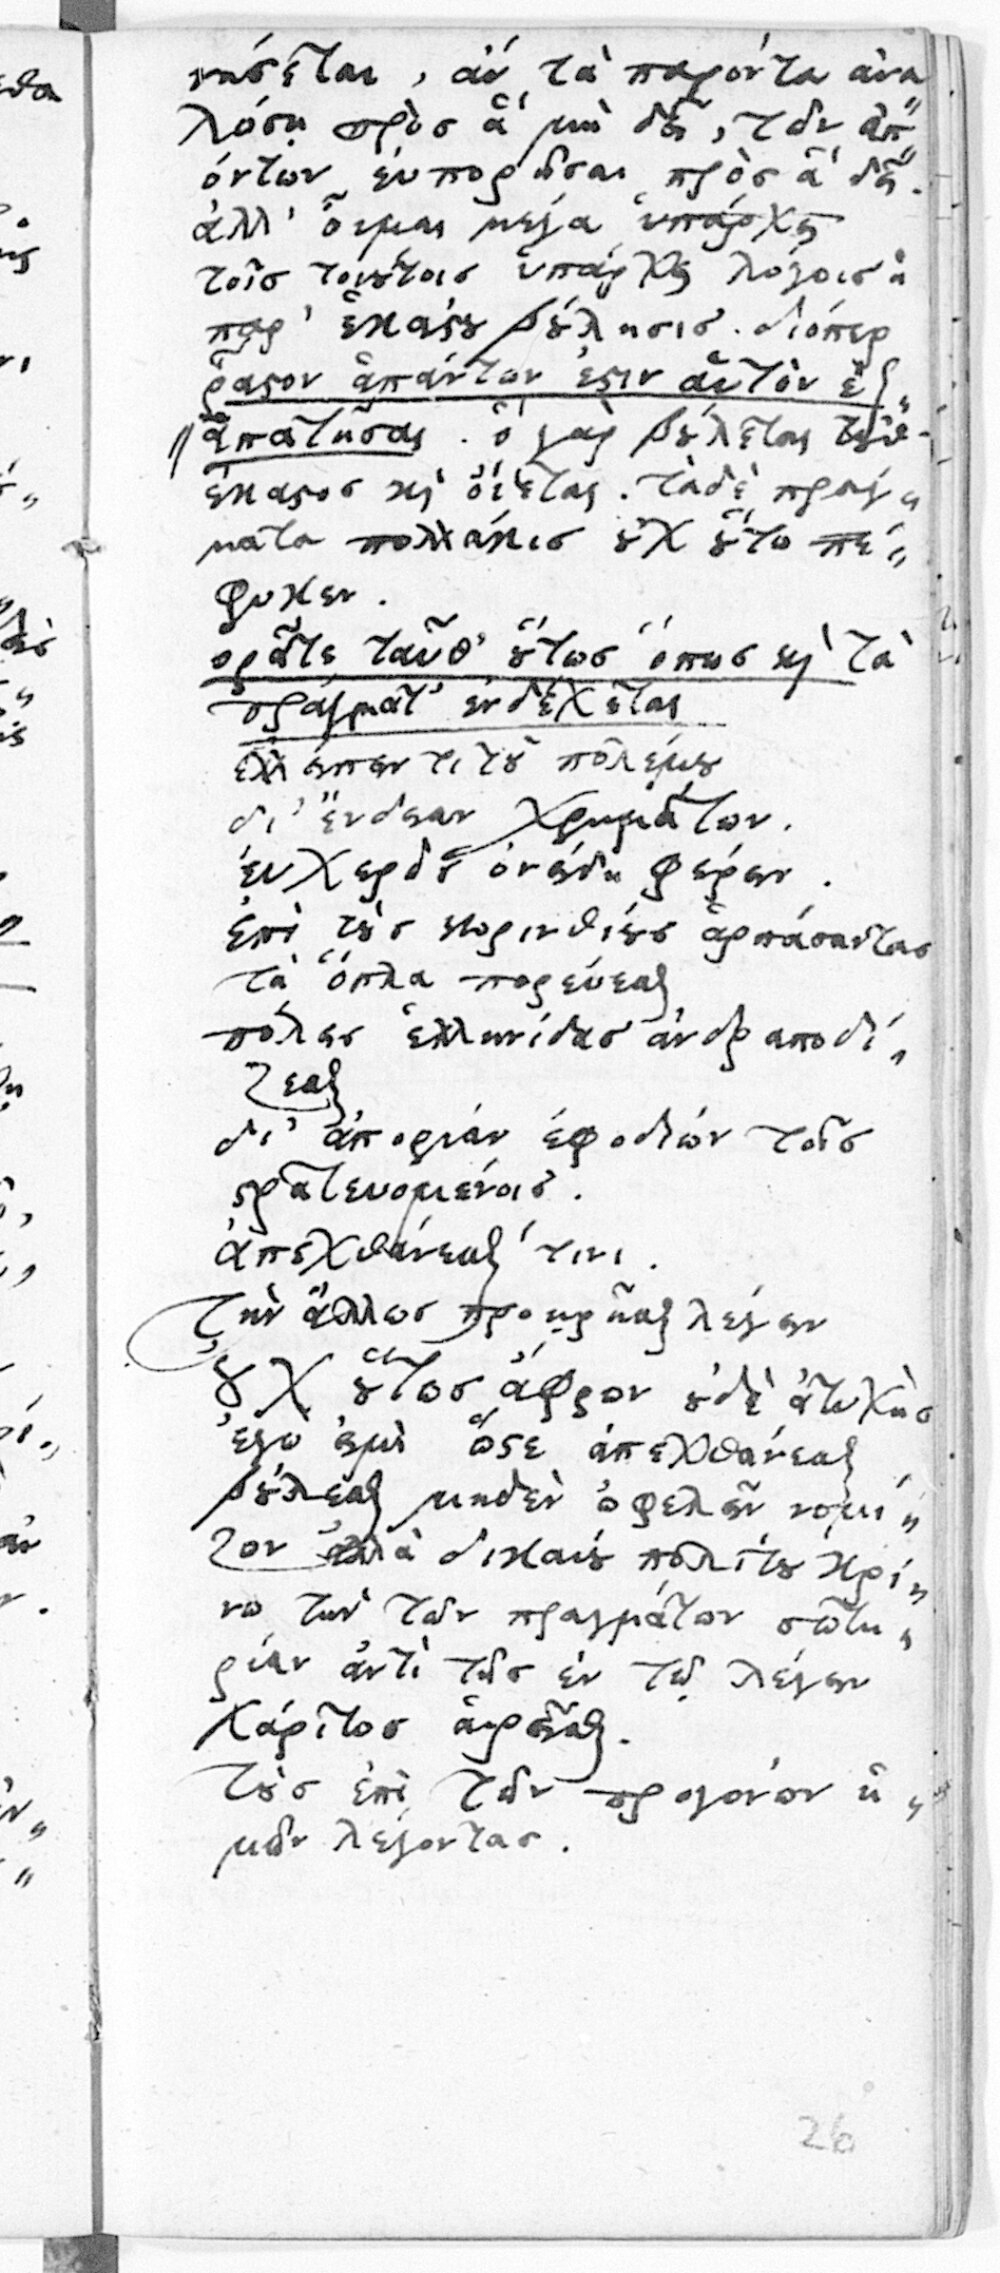 νήσεται, ἀν τὰ παρόντα ἀνα
λόση πρὸς ἃ μὴ δεῖ, τῶν ἀπ"
όντων εὐπορῆσαι πρὸς ἃ δεῖ.
ἀλλ' οἶμαι μέγα ὑπάρχει
τοῖς τοιούτοις ὑπάρχει λόγοις ἡ
παρ' ἑκάστου βούλησις. διόπερ
ῥᾶστον ἁπάντων ἐστιν αὑτὸν ἐξ"
ἀπατῆσαι. ὃ γὰρ βούλεται τοῦθ'
ἕκαστος καὶ οἴεται. τὰ δὲ πράγ"
ματα πολλάκις οὐχ οὕτω πέ"
φυκεν.
ὁρᾶτε ταῦθ' οὕτως ὅπως καὶ τὰ
πράγματ' ἐνδέχεται
ἐλλείπειν τι τοῦ πολέμου
δι' ἔνδειαν χρημάτων.
εὐχερῶς ὀνείδη φέρειν.
ἐπὶ τοὺς κορινθίους ἁρπάσαντας
τὰ ὅπλα πορεύεσθαι
πόλεις ἑλληνίδας ἀνδραποδί"
ζεσθαι
δι' ἀπορίαν ἐφοδίων τοῖς
στρατευομένοις.
ἀπεχθάνεσθαι τινι.
τὴν ἄλλως προῃρῆσθαι λέγειν
οὐχ οὕτως ἄφρων οὐδὲ ἀτυχὴς
ἐγώ εἰμὶ ὥστε ἀπεχθάνεσθαι
βούλεσθαι μηδὲν ὀφελεῖν νομί"
ζον ἀλλὰ δικαίου πολίτου κρί"
νω τὴν τῶν πραγμάτων σωτη"
ρίαν ἀντὶ τῆς ἐν τῷ λέγειν
χάριτος αἱρεῖσθαι.
τοὺς ἐπὶ τῶν προγόνων ἡ"
μῶν λέγοντας.
26